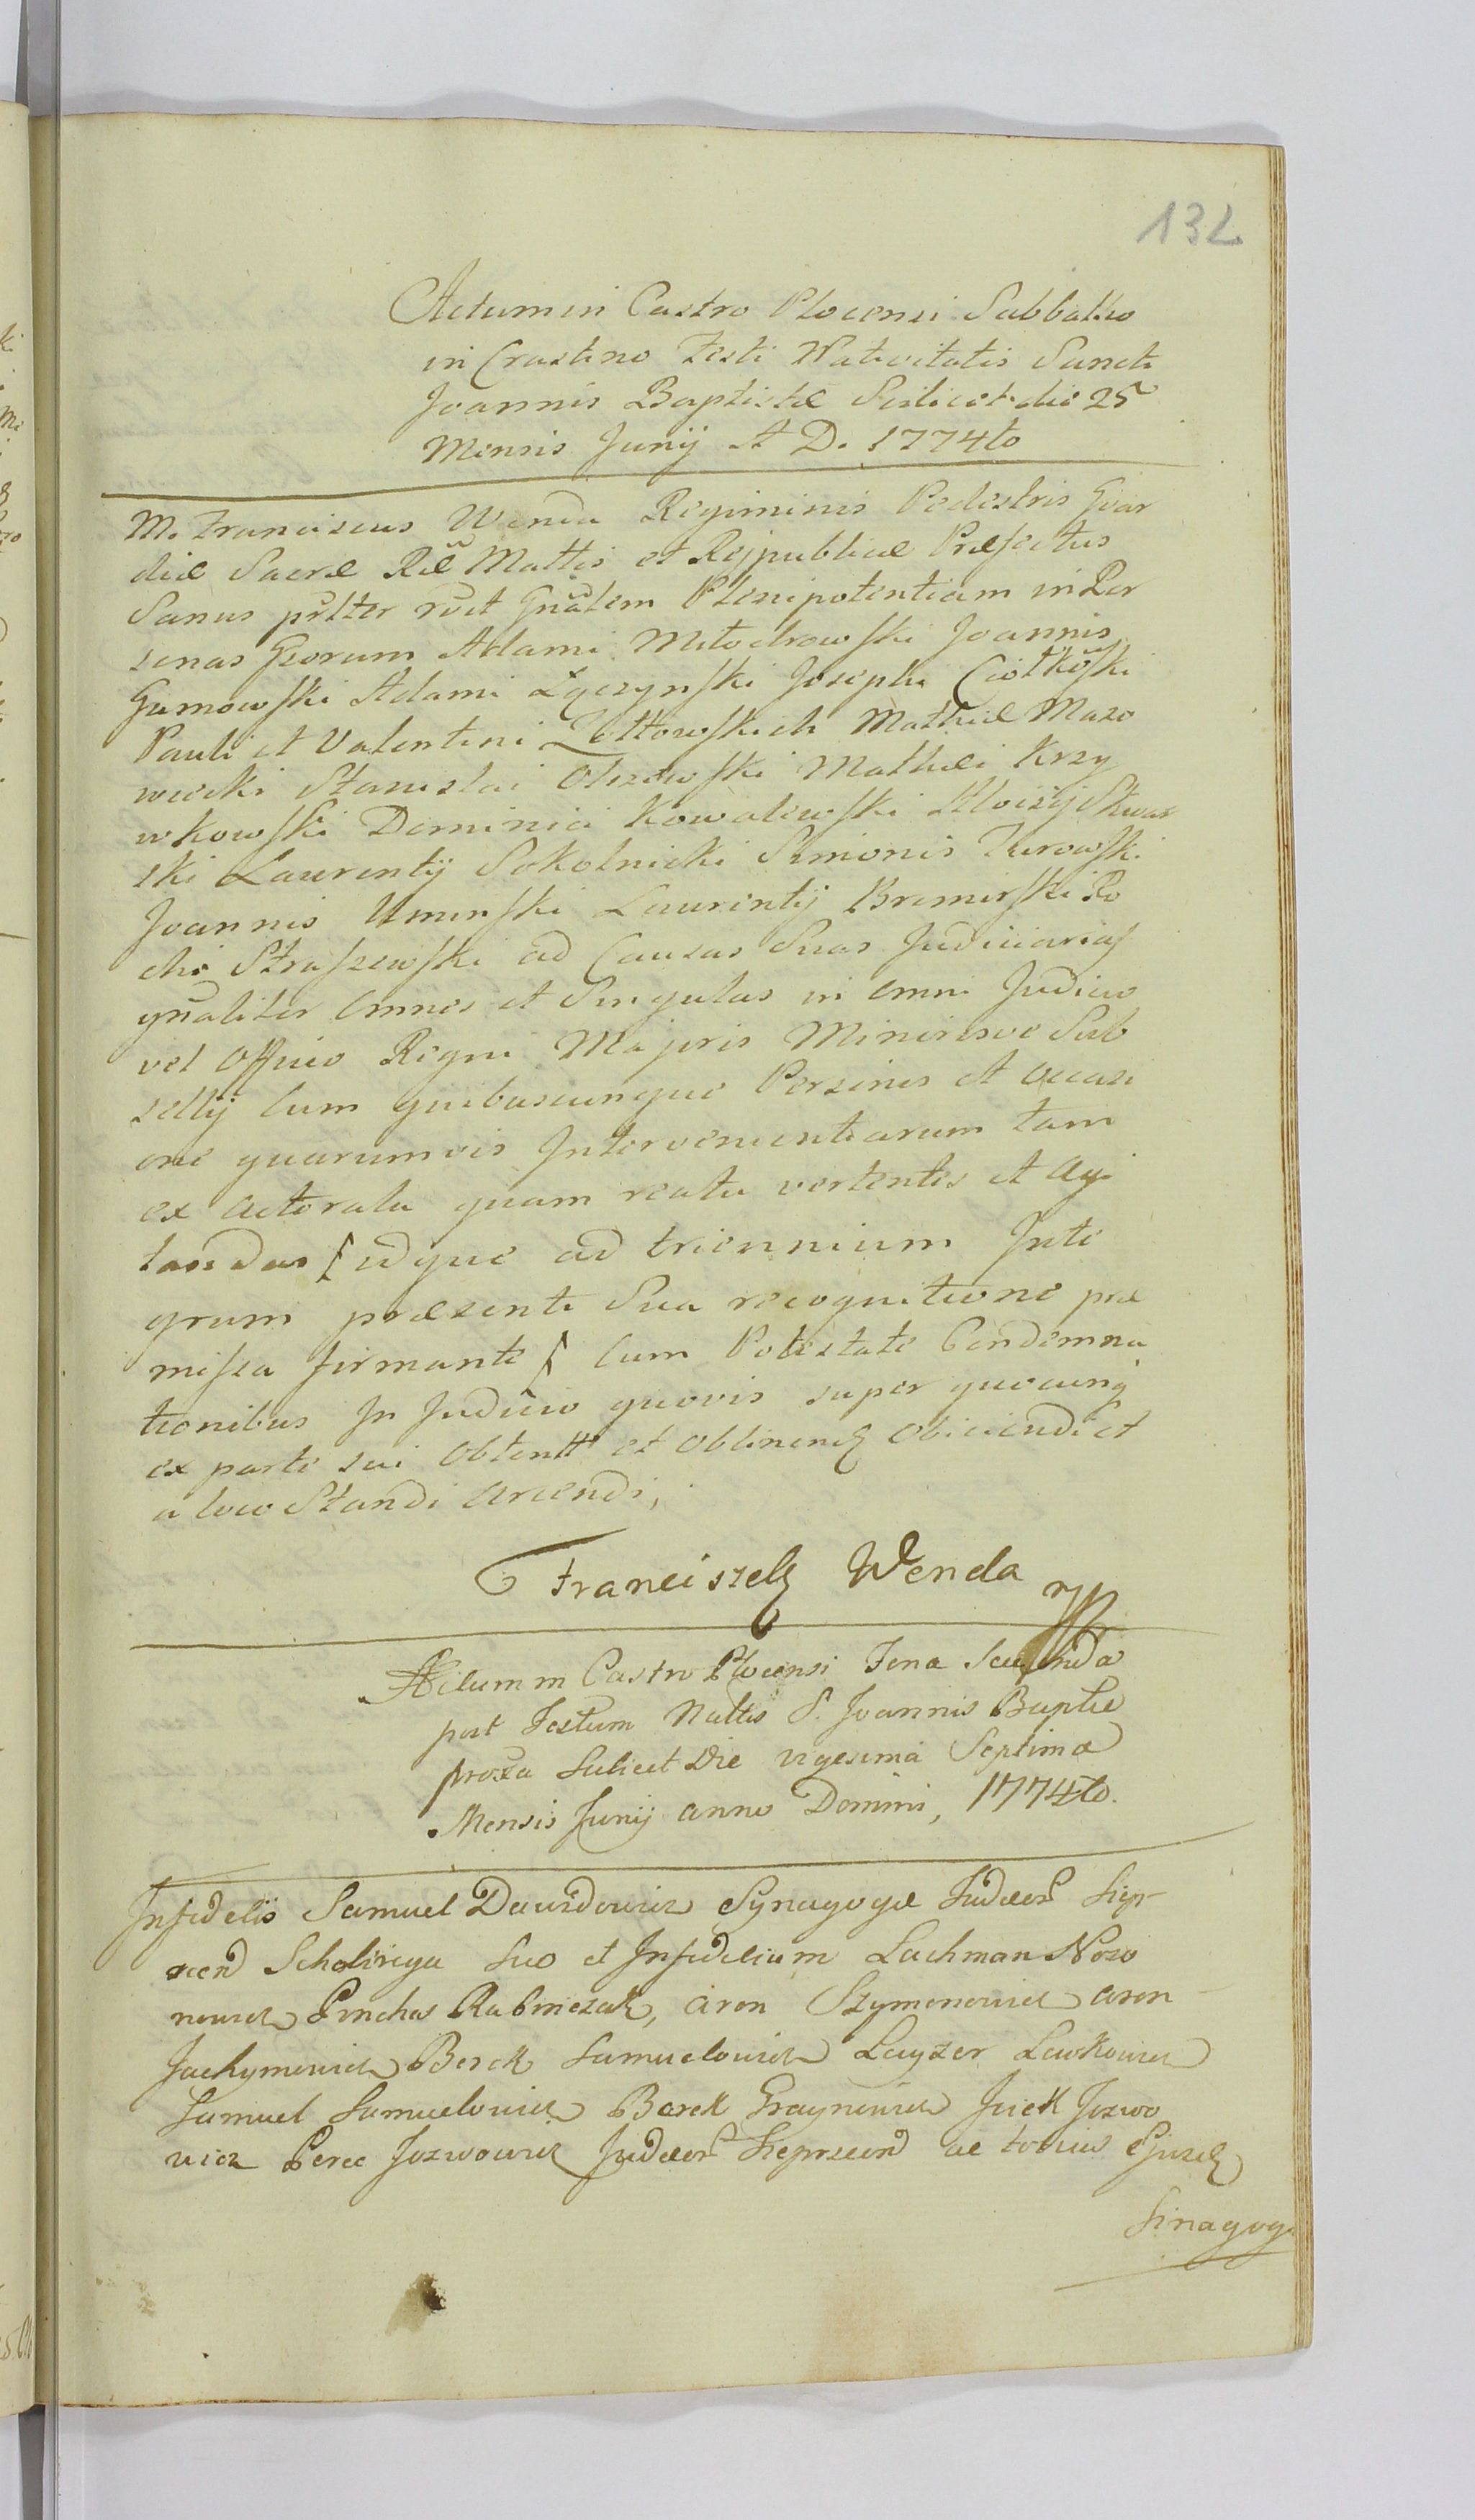 132
Actum in Castro Plocensi Sabbatho
in Crastino Festi Nativitatis Sancti
Joannis Baptistæ Scilicet die 25
Mensis Junij A D. 1774to
M. Franciscus Wenda Regiminis Pedestris Gvar
diæ Sacræ Ræ Mattis et Rejpublicæ Præfectus
Sanus prltter rvit Gnalem Plenipotentiam in Per
sonas Gsorum Adami Miłodrowski Joannis
Gumowski Adami Łączynski Josephi Ciołkoski
Pauli et Valentini Zottowskich Mathiæ Mazo
wiecki Stanislai Olszewski Mathæi Krzy
wkowski Dominici Kowalewski Aloizij Skwar
ski Laurentij Sokolnicki Simonis Zurowski
Joannis Uminski Laurentij Bromirski Ro
chi Straszewski ad Causas Suas Judiciarias
gnaliter Omnes et Singulas in omni Judicio
vel Officio Regni Majoris Minorisve Sub
sellij Cum quibuscunque Personis et occasi
one quarumvis Intervenientiarum tam
ex actoratu quam reatu vertentes et agi
tandas [idque ad triennium Inte
grum præsenti Sua recognitione præ
missa firmante] Cum Potestate Condemna
tionibus In Judicio quovis super quocunq
ex parte sui Obtentt et Obtinend Obiiciendi et
a loco Standi arcendi,
Franciszek Wenda mp
Actum in Castro Plocensi Feria Secunda
post Festum Nattis S. Joannis Baptæ
proxa Scilicet Die vigesima Septima
Mensis Junij anno Domini, 1774to.
Infidelis Samuel Dawidowicz Synagogæ Judæor Siep-
rcen Scholiriga Suo et Infidelium Lachman Noso
nowicz Pinchas Rabiniczak, Aron Szymonowicz Aron
Jachymowicz Berek Samuelowicz Layzer Lewkowicz
Samuel Samuelowicz Berek Graynowicz Jcick Jozwo
wicz Perec Jozwowicz Judæor Sieprscen ac totius Ejusd
Sinagog